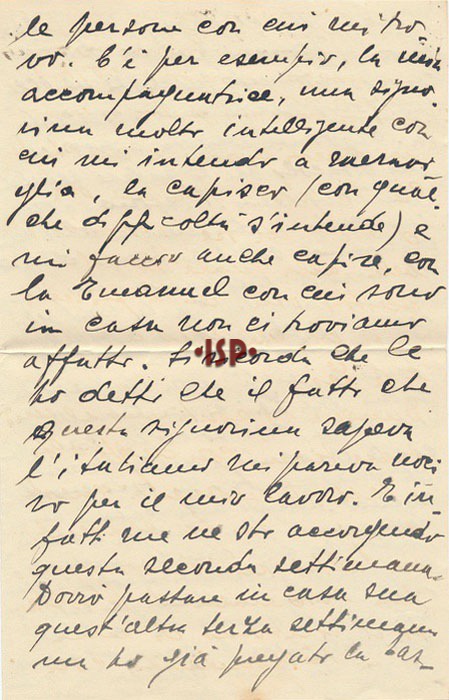 le persone con cui mi tro-
vo. C'è per esempio, la mia
accompagnatrice, una signo-
rina molto intelligente con
cui mi intendo a meravi
glia, la capisco (con qual-
che difficoltà s'intende) e
mi faccio anche capire, con
la Emanuel con cui sono
in casa non ci troviamo
affatto. Si ricorda che le
•ISP•
ho detto che il fatto che
questa signorina sapeva
l'italiano mi pareva noci
vo per il mio lavoro. E in
fatti me ne sto accorgendo
questa seconda settimana.
Dovrò passare in casa sua
quest'altra terza settimana
ma ho già pregato la